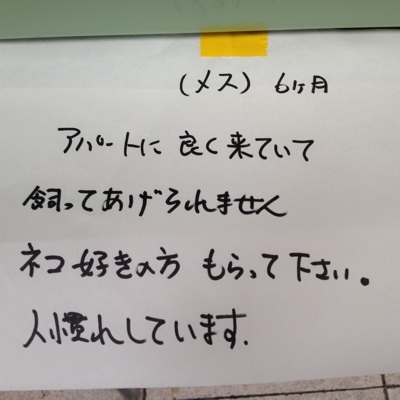 (メス) 6ヶ月
アパートに 良く来ていて
飼ってあげられません
ネコ好きの方 もらって下さい。
人慣れしています.